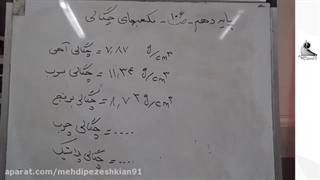 پایه دهم - ص ۱۰۶ - مکعبهای چگالی
چگالی آهن = ۷٫۸۷ g/cm³
چگالی سرب = ۱۱٫۳۴ g/cm³
چگالی برنج = ۸٫۷۳ g/cm³
چگالی چوب = ....
چگالی پلاستیک = ....
aparat.com/mehdipezeshkian91